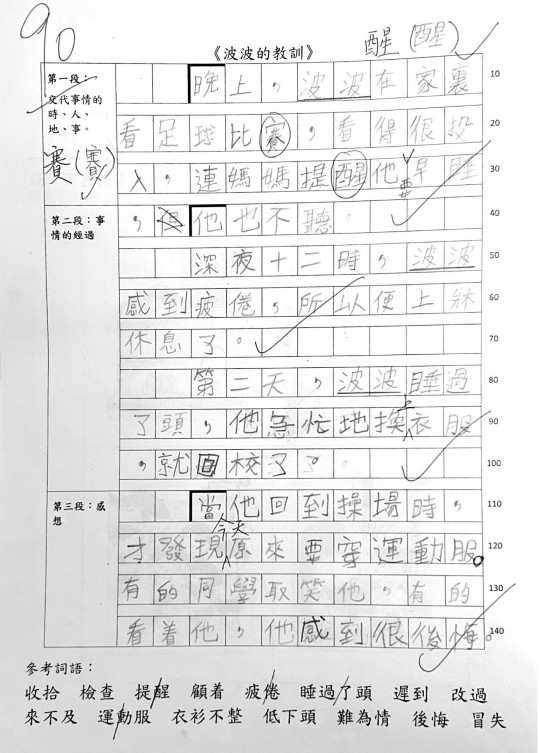 90
《波波的教訓》
醒(醒)
第一段:
交代事情的
時、人、
地、事。
賽(賽)
晚上,波波在家裏 10
看足球比賽,看得很投 20
入,連媽媽提醒他要早睡 30
第二段:事
情的經過
,但他也不聽。 40
深夜十二時,波波 50
感到疲倦,所以便上牀 60
休息了。 70
第二天,波波睡過 80
了頭,他急忙地換上衣服 90
,就回校了。 100
第三段:感
想
當他回到操場時, 110
才發現今天原來要穿運動服。 120
有的同學取笑他,有的 130
看着他,他感到很後悔。 140
參考詞語:
收拾 檢查 提醒 顧着 疲倦 睡過了頭 遲到 改過
來不及 運動服 衣衫不整 低下頭 難為情 後悔 冒失